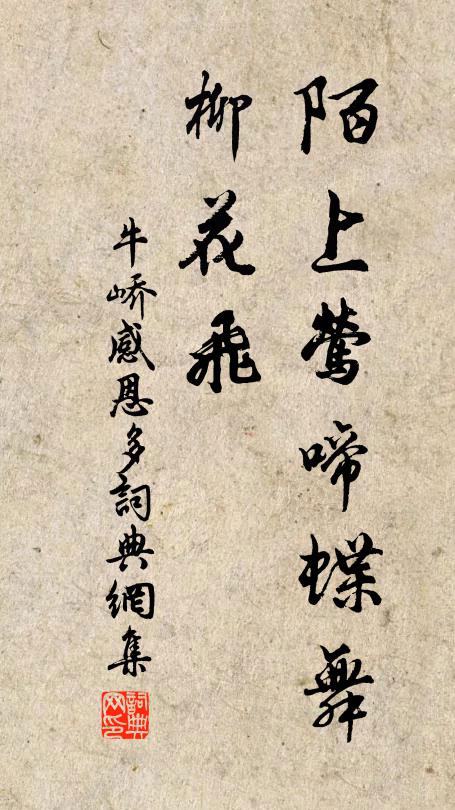 陌上鶯啼蝶舞
柳花飛
牛嶠感恩多詞典網集
詞典
网印